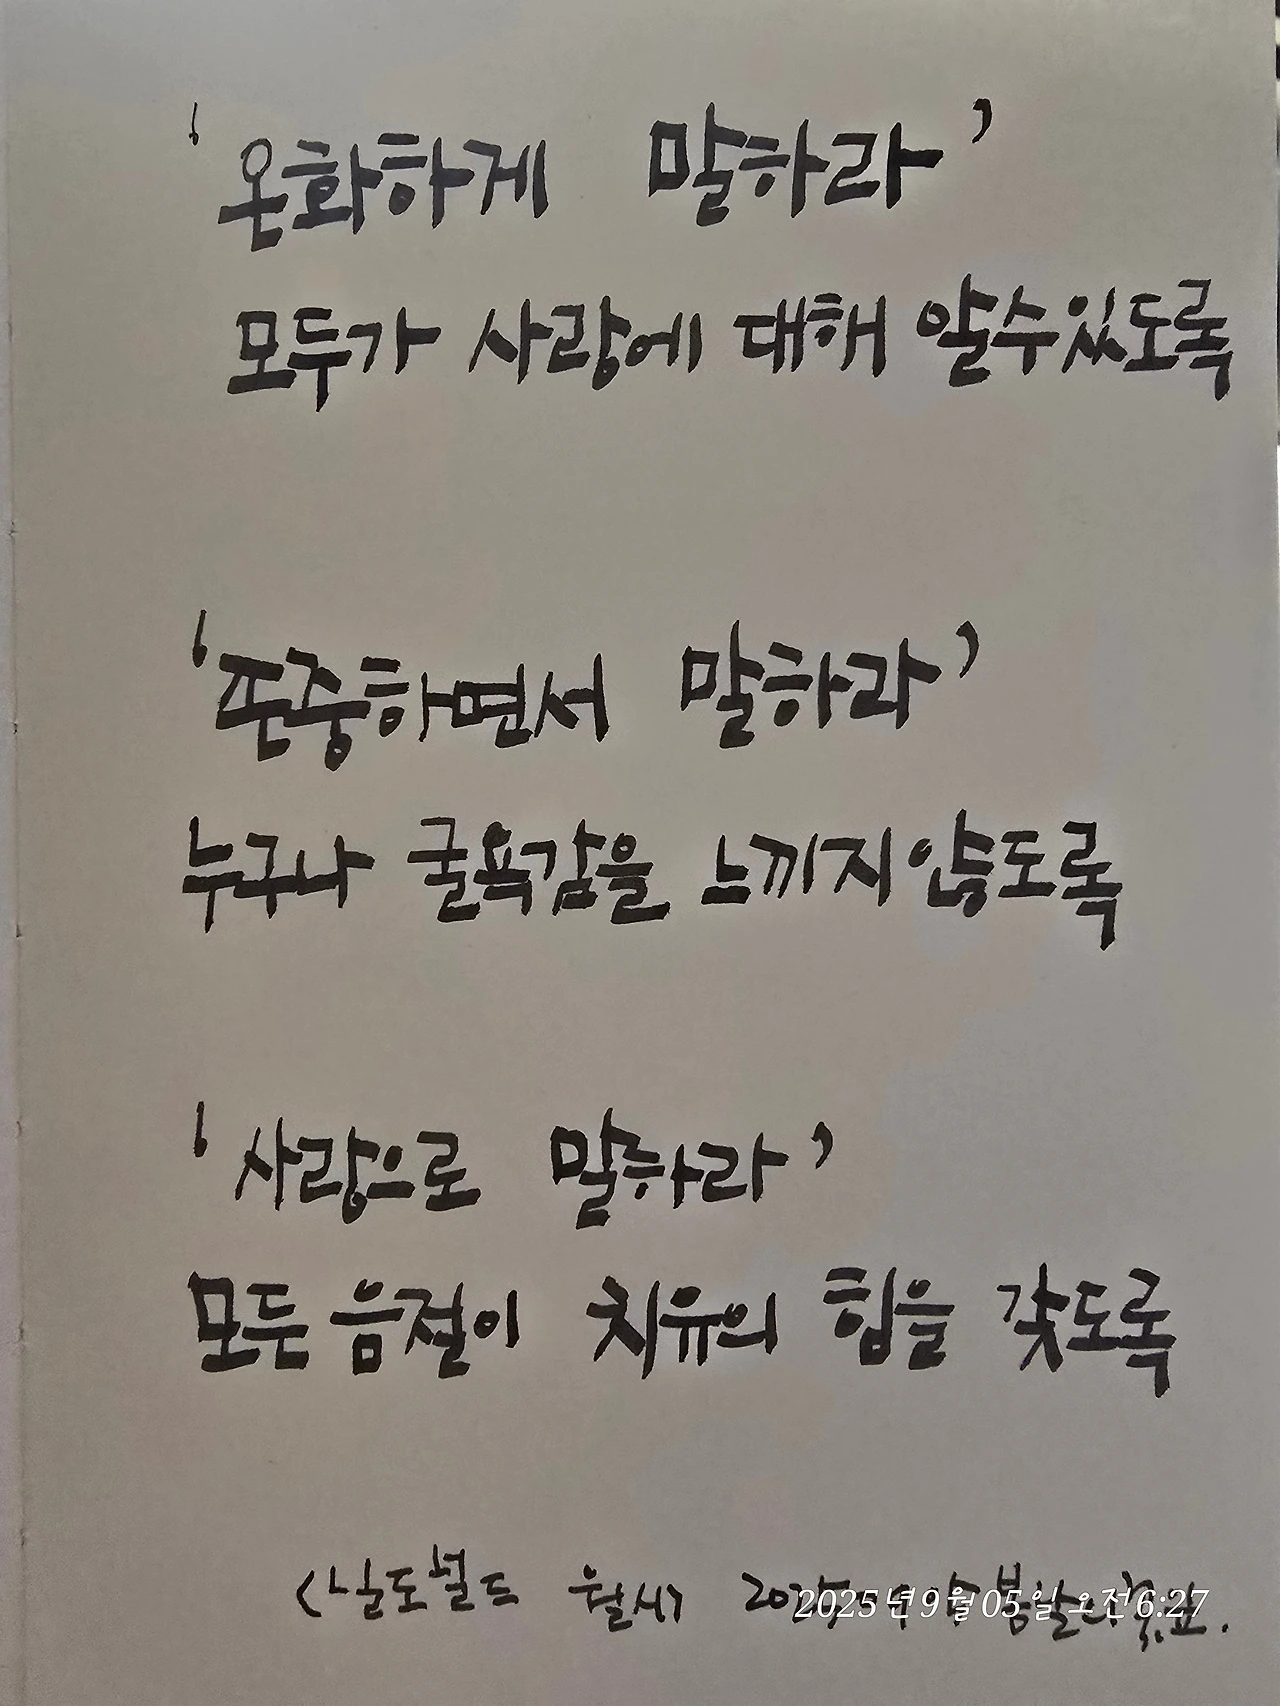 '온화하게 말하라'
모두가 사랑에 대해 알수있도록
'존중하면서 말하라'
누구나 굴욕감을 느끼지않도록
'사랑으로 말하라'
모든 음절이 치유의 힘을 갖도록
<닐도월드 월시>
2025년9월05일 오전6:27